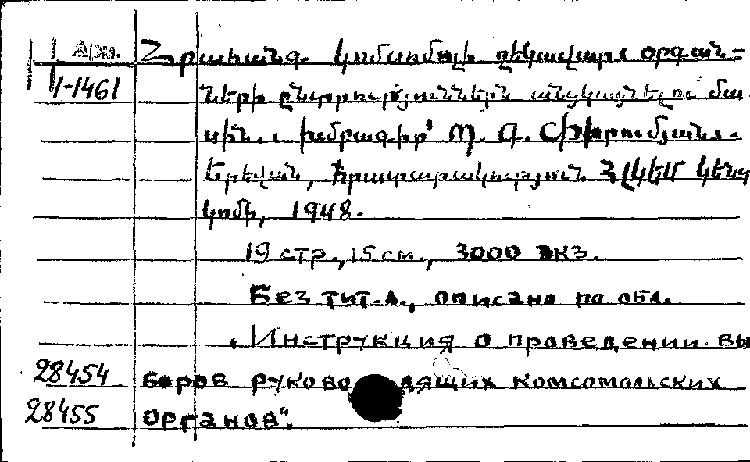 Арм.
1-1461
Հրահանգ կոմսոմոլի ղեկավար օրգան-
ների ընտրություններն անցկացնելու մա
սին. խմբագիր՝ Մ. Գ.
Երևան, Հրատարակություն ՀԼԿԵՄ Կենտ
կոմի, 1948.
19 стр., 15 см., 3000 экз.
Без тит. л., описано по обл.
„Инструкция о проведении вы
28454 боров руководящих комсомольских
28455 органов".